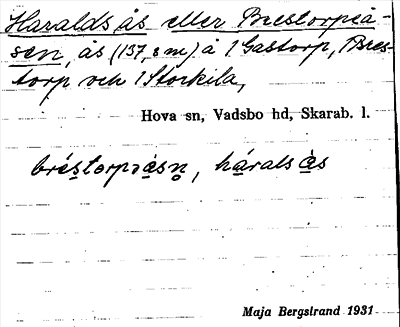 Haralds ås eller Brestorpså-
sen, ås (137,8 m) å 1 Gastorp, Bres-
torp och 1 Storkila,
Hova sn, Vadsbo hd, Skarab. l.
bréstorpsåsn, hárals ås
Maja Bergstrand 1931